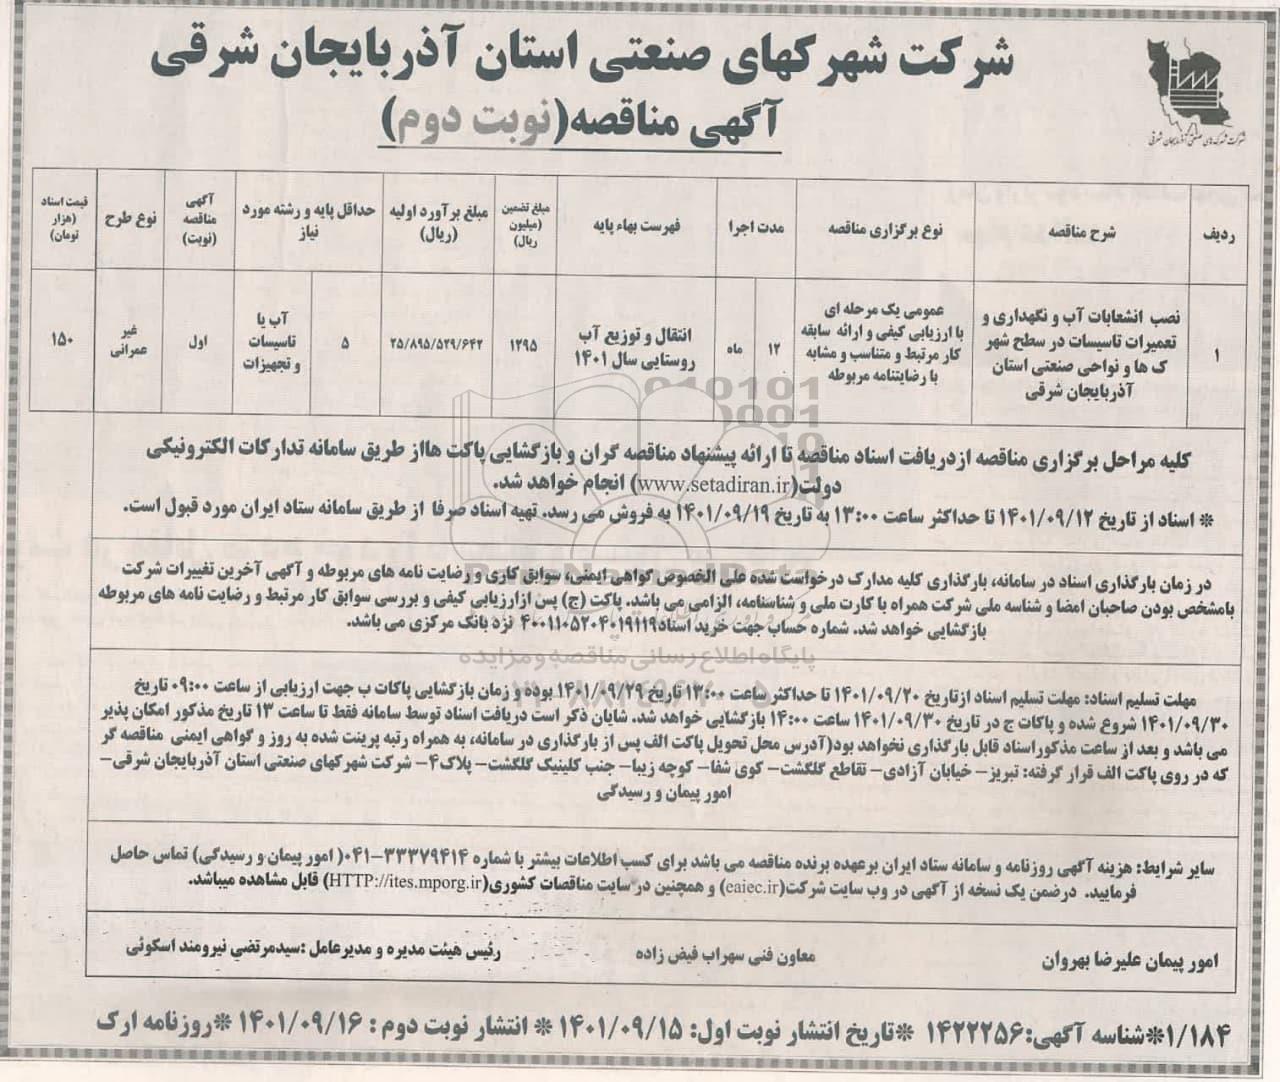 شرکت شهرکهای صنعتی استان آذربایجان شرقی
آگهی مناقصه(نوبت دوم)
شرکت شهرک‌های صنعتی آذربایجان شرقی
ردیف
شرح مناقصه
نوع برگزاری مناقصه
مدت اجرا
فهرست بهاء پایه
مبلغ تضمین
(میلیون
ریال)
مبلغ برآورد اولیه
(ریال)
حداقل پایه و رشته مورد
نیاز
آگهی
مناقصه
(نوبت)
نوع طرح
قیمت اسناد
(هزار
تومان)
۱
نصب انشعابات آب و نگهداری و
تعمیرات تاسیسات در سطح شهر
ک ها و نواحی صنعتی استان
آذربایجان شرقی
عمومی یک مرحله ای
با ارزیابی کیفی و ارائه سابقه
کار مرتبط و متناسب و مشابه
با رضایتنامه مربوطه
۱۲
ماه
انتقال و توزیع آب
روستایی سال ۱۴۰۱
۱۲۹۵
۲۵/۸۹۵/۵۲۹/۶۴۲
۵
آب یا
تاسیسات
و تجهیزات
اول
غیر
عمرانی
۱۵۰
کلیه مراحل برگزاری مناقصه ازدریافت اسناد مناقصه تا ارائه پیشنهاد مناقصه گران و بازگشایی پاکت هااز طریق سامانه تدارکات الکترونیکی
دولت(www.setadiran.ir) انجام خواهد شد.
* اسناد از تاریخ ۱۴۰۱/۰۹/۱۲ تا حداکثر ساعت ۱۳:۰۰ به تاریخ ۱۴۰۱/۰۹/۱۹ به فروش می رسد. تهیه اسناد صرفا از طریق سامانه ستاد ایران مورد قبول است.
در زمان بارگذاری اسناد در سامانه، بارگذاری کلیه مدارک درخواست شده علی الخصوص گواهی ایمنی، سوابق کاری و رضایت نامه های مربوطه و آگهی آخرین تغییرات شرکت
بامشخص بودن صاحبان امضا و شناسه ملی شرکت همراه با کارت ملی و شناسنامه، الزامی می باشد. پاکت (ج) پس ازارزیابی کیفی و بررسی سوابق کار مرتبط و رضایت نامه های مربوطه
بازگشایی خواهد شد. شماره حساب جهت خرید اسناد۴۰۰۱۱۰۵۲۰۴۰۱۹۱۱۹ نزد بانک مرکزی می باشد.
پایگاه اطلاع رسانی مناقصه و مزایده
مهلت تسلیم اسناد: مهلت تسلیم اسناد ازتاریخ ۱۴۰۱/۰۹/۲۰ تا حداکثر ساعت ۱۳:۰۰ تاریخ ۱۴۰۱/۰۹/۲۹ بوده و زمان بازگشایی پاکات ب جهت ارزیابی از ساعت ۰۹:۰۰ تاریخ
۱۴۰۱/۰۹/۳۰ شروع شده و پاکات ج در تاریخ ۱۴۰۱/۰۹/۳۰ ساعت ۱۴:۰۰ بازگشایی خواهد شد. شایان ذکر است دریافت اسناد توسط سامانه فقط تا ساعت ۱۳ تاریخ مذکور امکان پذیر
می باشد و بعد از ساعت مذکوراسناد قابل بارگذاری نخواهد بود(آدرس محل تحویل پاکت الف پس از بارگذاری در سامانه، به همراه رتبه پرینت شده به روز و گواهی ایمنی مناقصه گر
که در روی پاکت الف قرار گرفته: تبریز- خیابان آزادی- تقاطع گلگشت- کوی شفا- کوچه زیبا- جنب کلینیک گلگشت- پلاک۴- شرکت شهرکهای صنعتی استان آذربایجان شرقی-
امور پیمان و رسیدگی
سایر شرایط: هزینه آگهی روزنامه و سامانه ستاد ایران برعهده برنده مناقصه می باشد برای کسب اطلاعات بیشتر با شماره ۳۳۳۷۹۴۱۴-۰۴۱( امور پیمان و رسیدگی) تماس حاصل
فرمایید. درضمن یک نسخه از آگهی در وب سایت شرکت(eaiec.ir) و همچنین در سایت مناقصات کشوری(HTTP://ites.mporg.ir) قابل مشاهده میباشد.
امور پیمان علیرضا بهروان
معاون فنی سهراب فیض زاده
رئیس هیئت مدیره و مدیرعامل :سیدمرتضي نیرومند اسکوئی
۱/۱۸۴*شناسه آگهی:۱۴۲۲۲۵۶ *تاریخ انتشار نوبت اول: ۱۴۰۱/۰۹/۱۵ * انتشار نوبت دوم : ۱۴۰۱/۰۹/۱۶ *روزنامه ارک